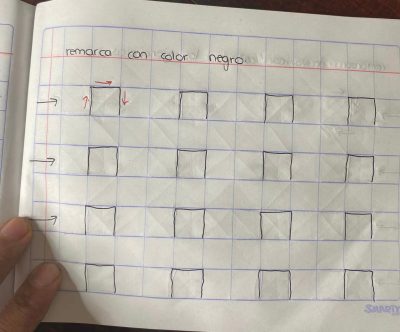 remarca con color negro